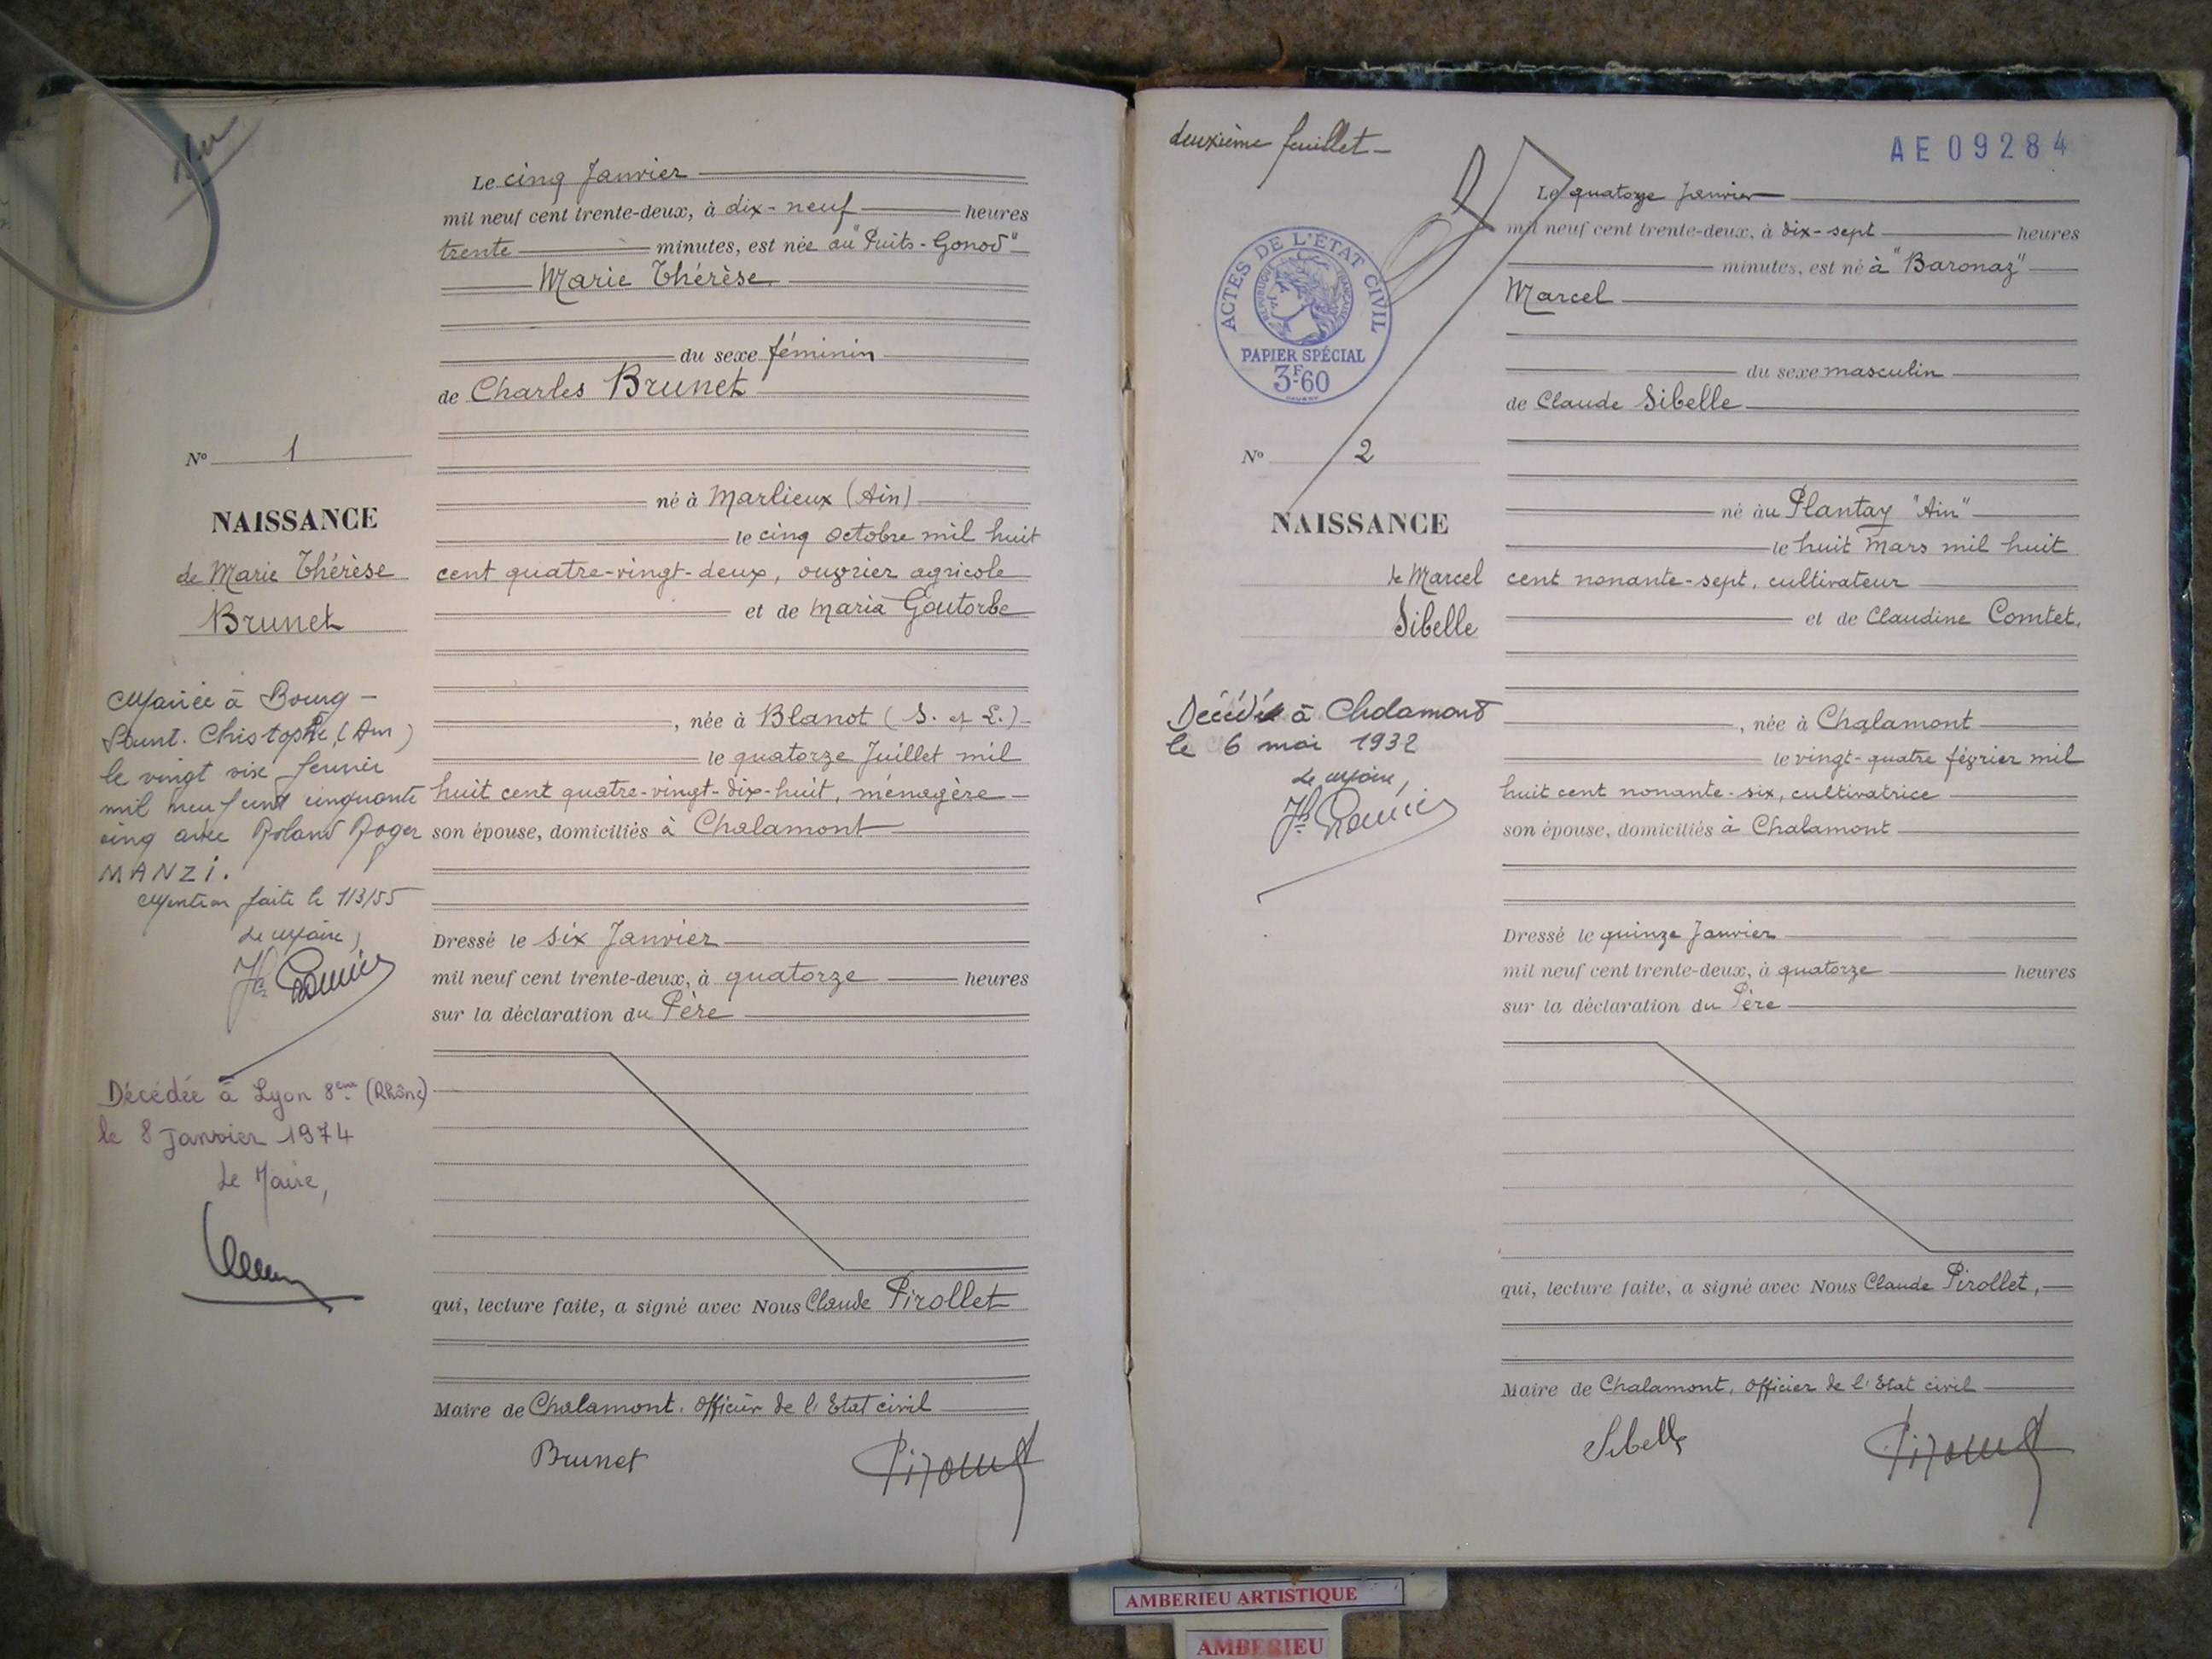 Le cinq Janvier
mil neuf cent trente-deux, à dix-neuf heures
trente minutes, est née au "Puits-Gonod"
Marie Thérèse
du sexe féminin
de Charles Brunet
N° 1
NAISSANCE
de Marie Thérèse
Brunet
né à Marlieux (Ain)
le cinq octobre mil huit
cent quatre-vingt-deux, ouvrier agricole
et de Maria Goutorbe
, née à Blanot (S. et L.)
le quatorze Juillet mil
huit cent quatre-vingt-dix-huit, ménagère
son épouse, domiciliés à Chalamont
Mariée à Bourg-
Saint. Christophe, (Ain)
le vingt six fevrier
mil neuf cent cinquante
cinq avec Roland Roger
MANZI.
Mention faite le 1/3/55
Le Maire,
Dressé le six Janvier
mil neuf cent trente-deux, à quatorze heures
sur la déclaration du Père
Décédée à Lyon 8eme (Rhône)
le 8 Janvier 1974
Le Maire,
qui, lecture faite, a signé avec Nous Claude Pirollet
Maire de Chalamont. Officier de l'Etat civil
Brunet
deuxième feuillet
AE 09284
ACTES DE L'ÉTAT CIVIL
RÉPUBLIQUE FRANÇAISE
PAPIER SPÉCIAL
3F60
Le quatorze Janvier
mil neuf cent trente-deux, à dix-sept heures
minutes, est né à "Baronaz"
Marcel
du sexe masculin
de Claude Sibelle
N° 2
NAISSANCE
de Marcel
Sibelle
né au Plantay "Ain"
le huit Mars mil huit
cent nonante-sept, cultivateur
et de Claudine Comtet,
, née à Chalamont
le vingt-quatre février mil
huit cent nonante-six, cultivatrice
son épouse, domiciliés à Chalamont
Décédé à Chalamont
le 6 mai 1932
Le Maire,
Dressé le quinze Janvier
mil neuf cent trente-deux, à quatorze heures
sur la déclaration du Père
qui, lecture faite, a signé avec Nous Claude Pirollet,
Maire de Chalamont. Officier de l'Etat civil
Sibelle
AMBERIEU ARTISTIQUE
AMBERIEU